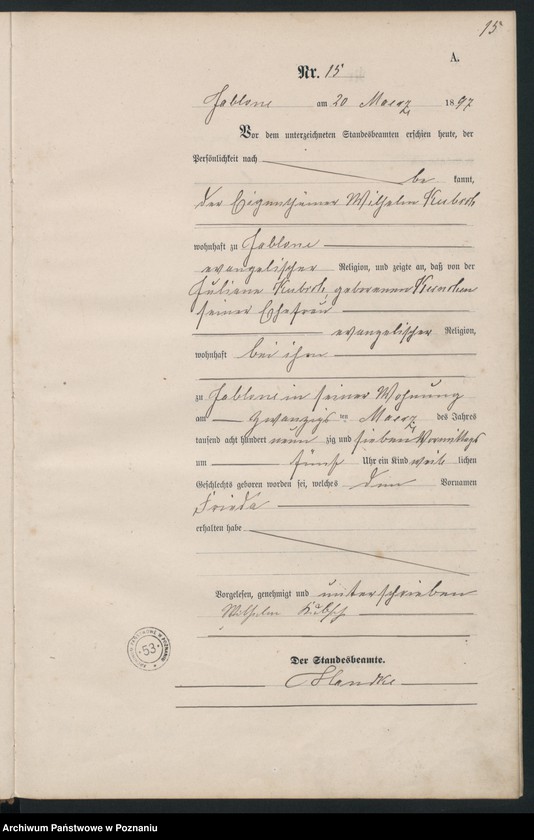 15
A.
Nr. 15
Jablone am 20 Maerz 1897
Vor dem unterzeichneten Standesbeamten erschien heute, der
Persönlichkeit nach
be kannt,
der Eigenthümer Wilhelm Kubsch
wohnhaft zu Jablone
evangelischer Religion, und zeigte an, daß von der
Juliane Kubsch, geborenen
seiner Ehefrau
evangelischer Religion,
wohnhaft bei ihm
zu Jablone in seiner Wohnung
am zwanzigs ten Maerz des Jahres
tausend acht hundert neun zig und sieben Vormittags
um fünf Uhr ein Kind weib lichen
Geschlechts geboren worden sei, welches den Vornamen
Frieda
erhalten habe
Vorgelesen, genehmigt und unterschrieben
Wilhelm Kubsch
Der Standesbeamte.
ARCHIWUM PAŃSTWOWE W POZNANIU
53
Archiwum Państwowe w Poznaniu